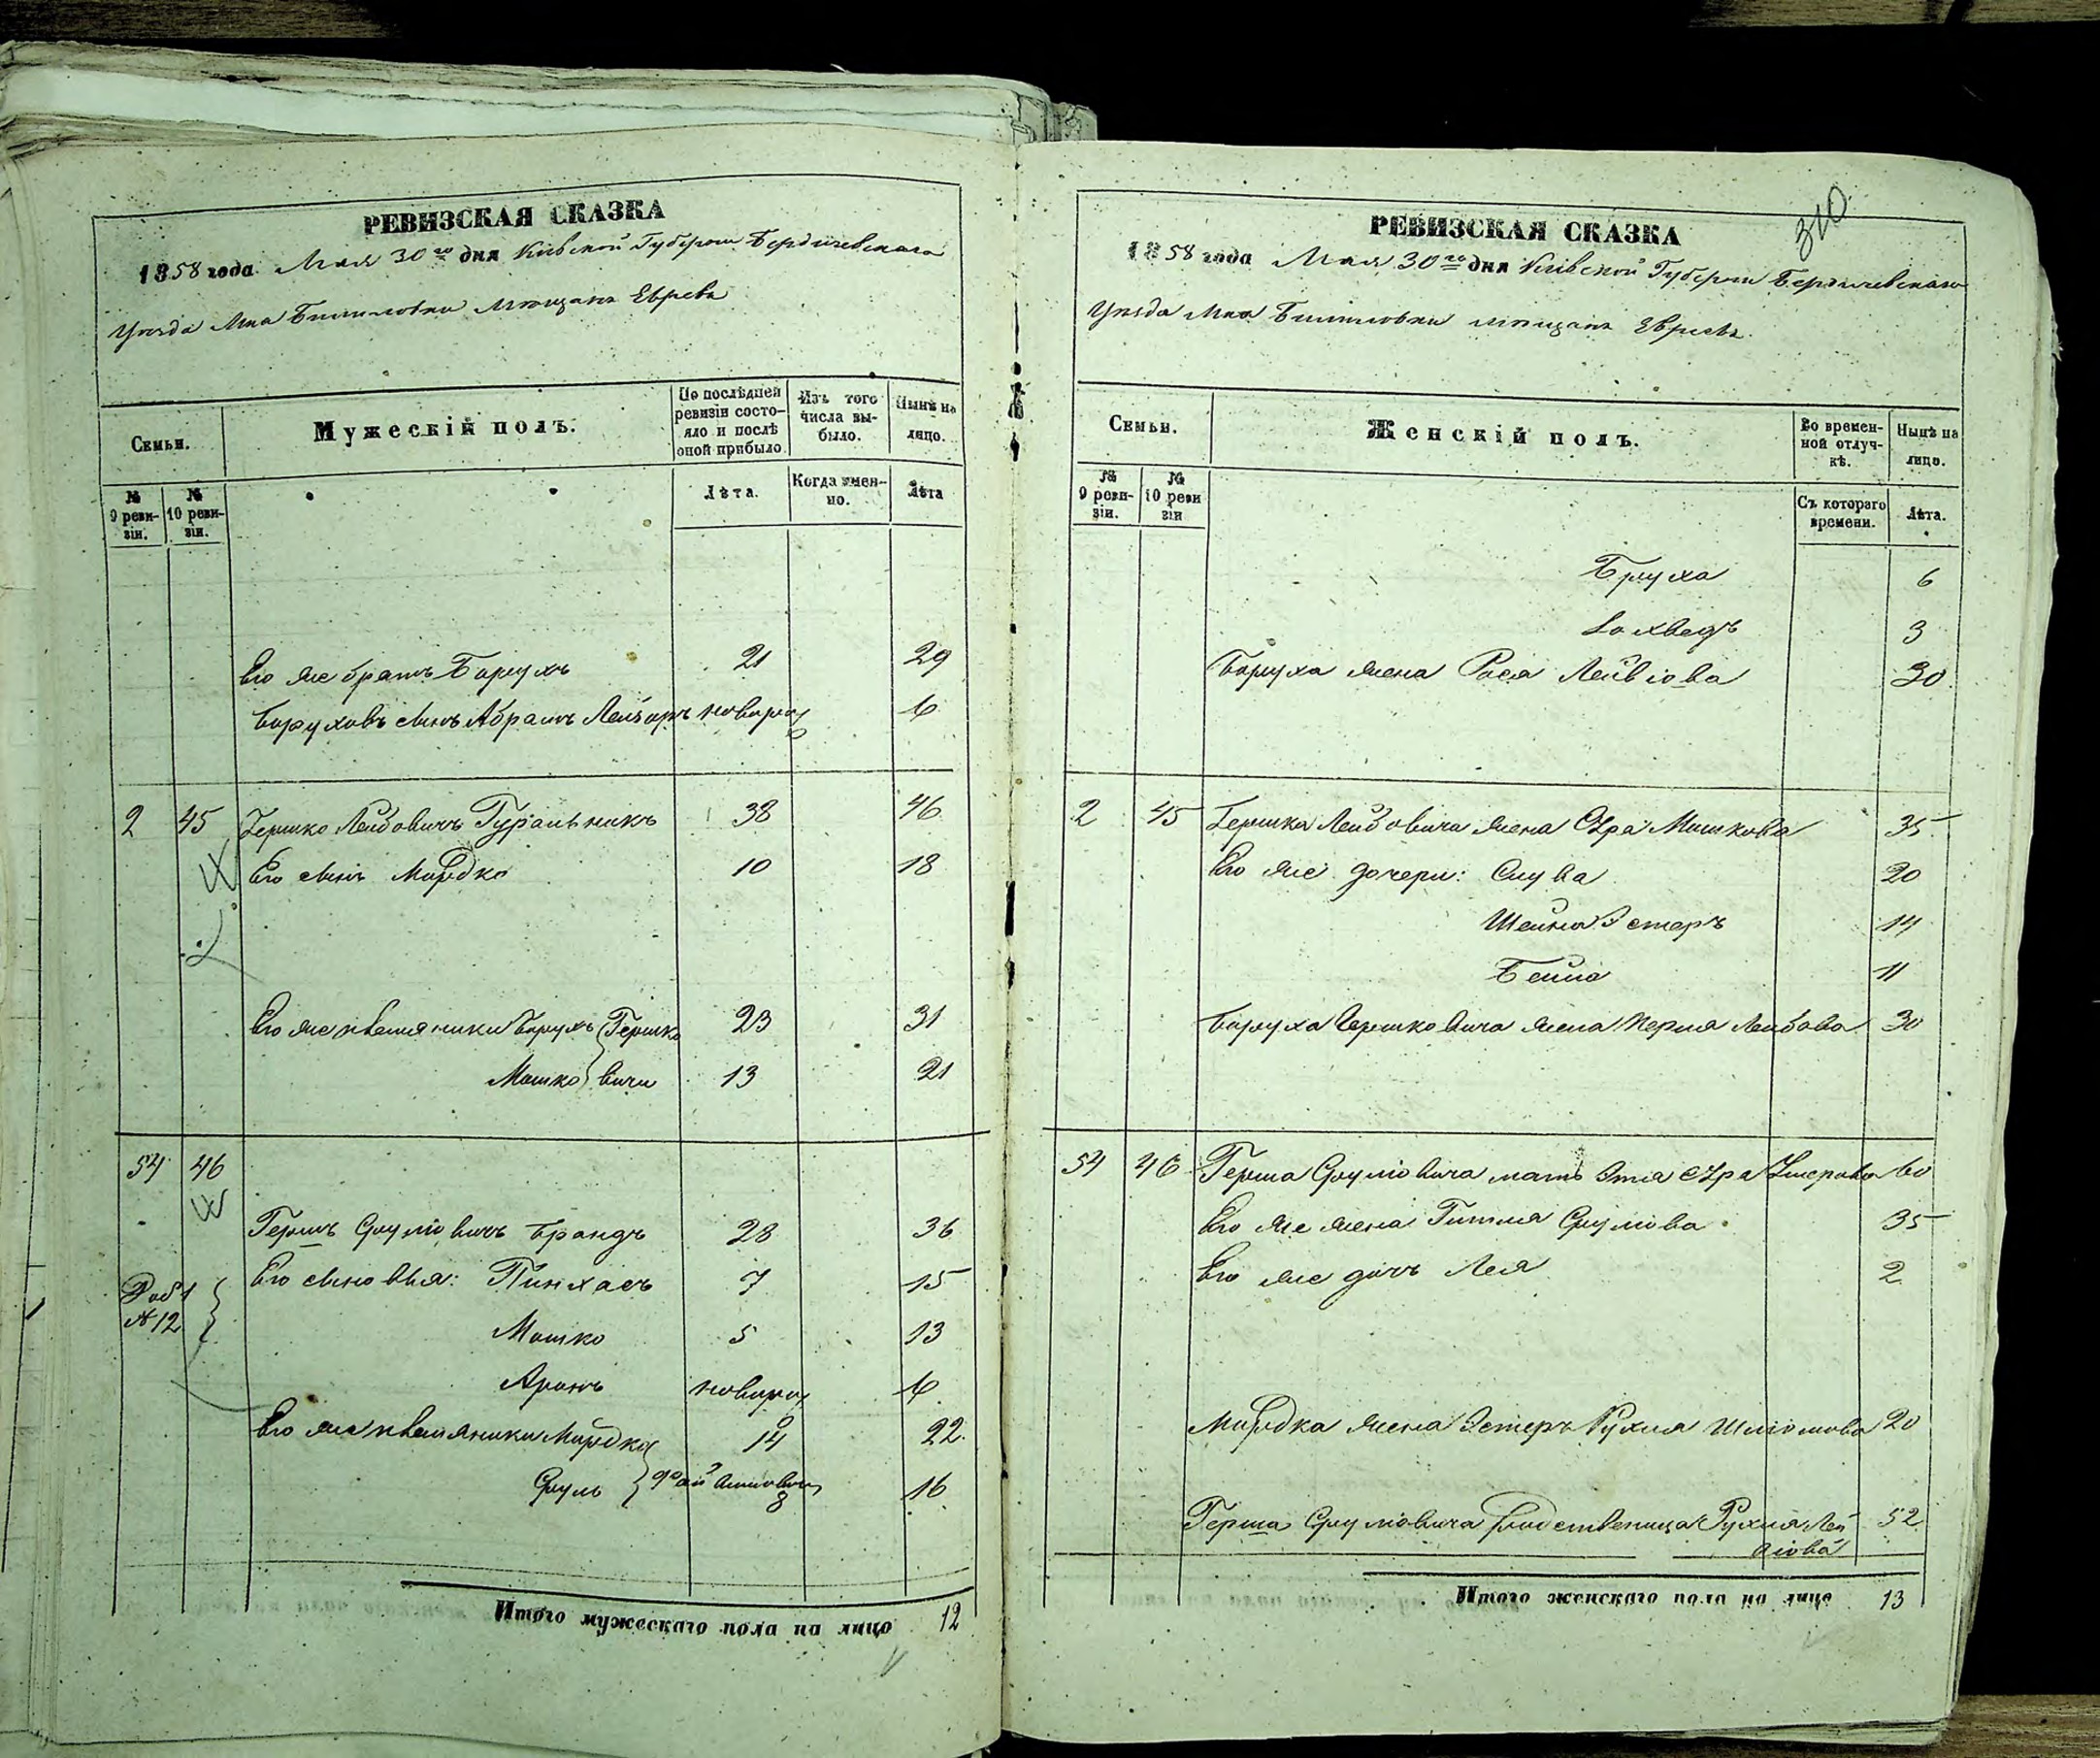 РЕВИЗСКАЯ СКАЗКА
1858 года Мая 30го дня Кіевской Губерніи Бердичевскаго
Уѣзда Мка Бѣлиловки мѣщанъ Евреевъ
Семьи.
Мужескій полъ.
По послѣдней ревизіи состояло и послѣ оной прибыло
Изъ того числа выбыло.
Нынѣ на лицо.
№ 9 ревизіи.
№ 10 ревизіи.
Лѣта.
Когда именно.
Лѣта
Его же братъ Борухъ 21 29
Боруховъ сынъ Абрамъ Лейзоръ новорож 6
2 45 Гершко Лейбовичъ Гуральникъ 38 46
Его сынъ Мордко 10 18
Его же племяники Борухъ } Гершко 23 31
Мошко } вичи 13 21
54 46
Гершъ Срулiовичъ Брандъ 28 36
Его сыновья: Пинхасъ 7 15
№ 12
Мошко 5 13
Аронъ новорож 6
Его же племяники Мордко 14 22
Сруль } 8 16
Итого мужескаго пола на лицо 12
310
РЕВИЗСКАЯ СКАЗКА
1858 года Мая 30го дня Кіевской Губерніи Бердичевскаго
Уѣзда Мка Бѣлиловки мѣщанъ Евреевъ
Семьи.
Женскій полъ.
Во временной отлучкѣ.
Нынѣ на лицо.
№ 9 ревизіи.
№ 10 ревизіи
Съ котораго времени.
Лѣта.
Бруха 6
Іохведъ 3
Боруха жена Рося Лейбіова 30
2 45 Гершка Лейбовича жена Сура Мошкова 35
Его же дочери: Слува 20
Шейна Эстеръ 14
Бейла 11
Боруха Гершковича жена Перля Лейбова 30
54 46 Герша Срулiовича мать Этя Сура 60
Его же жена Гитля Срулова 35
Его же дочь Лея 2
Мордка жена Эстеръ Рухля Шліомова 20
Герша Срулiовича родственица Рухля 52
Итого женскаго пола на лицо 13